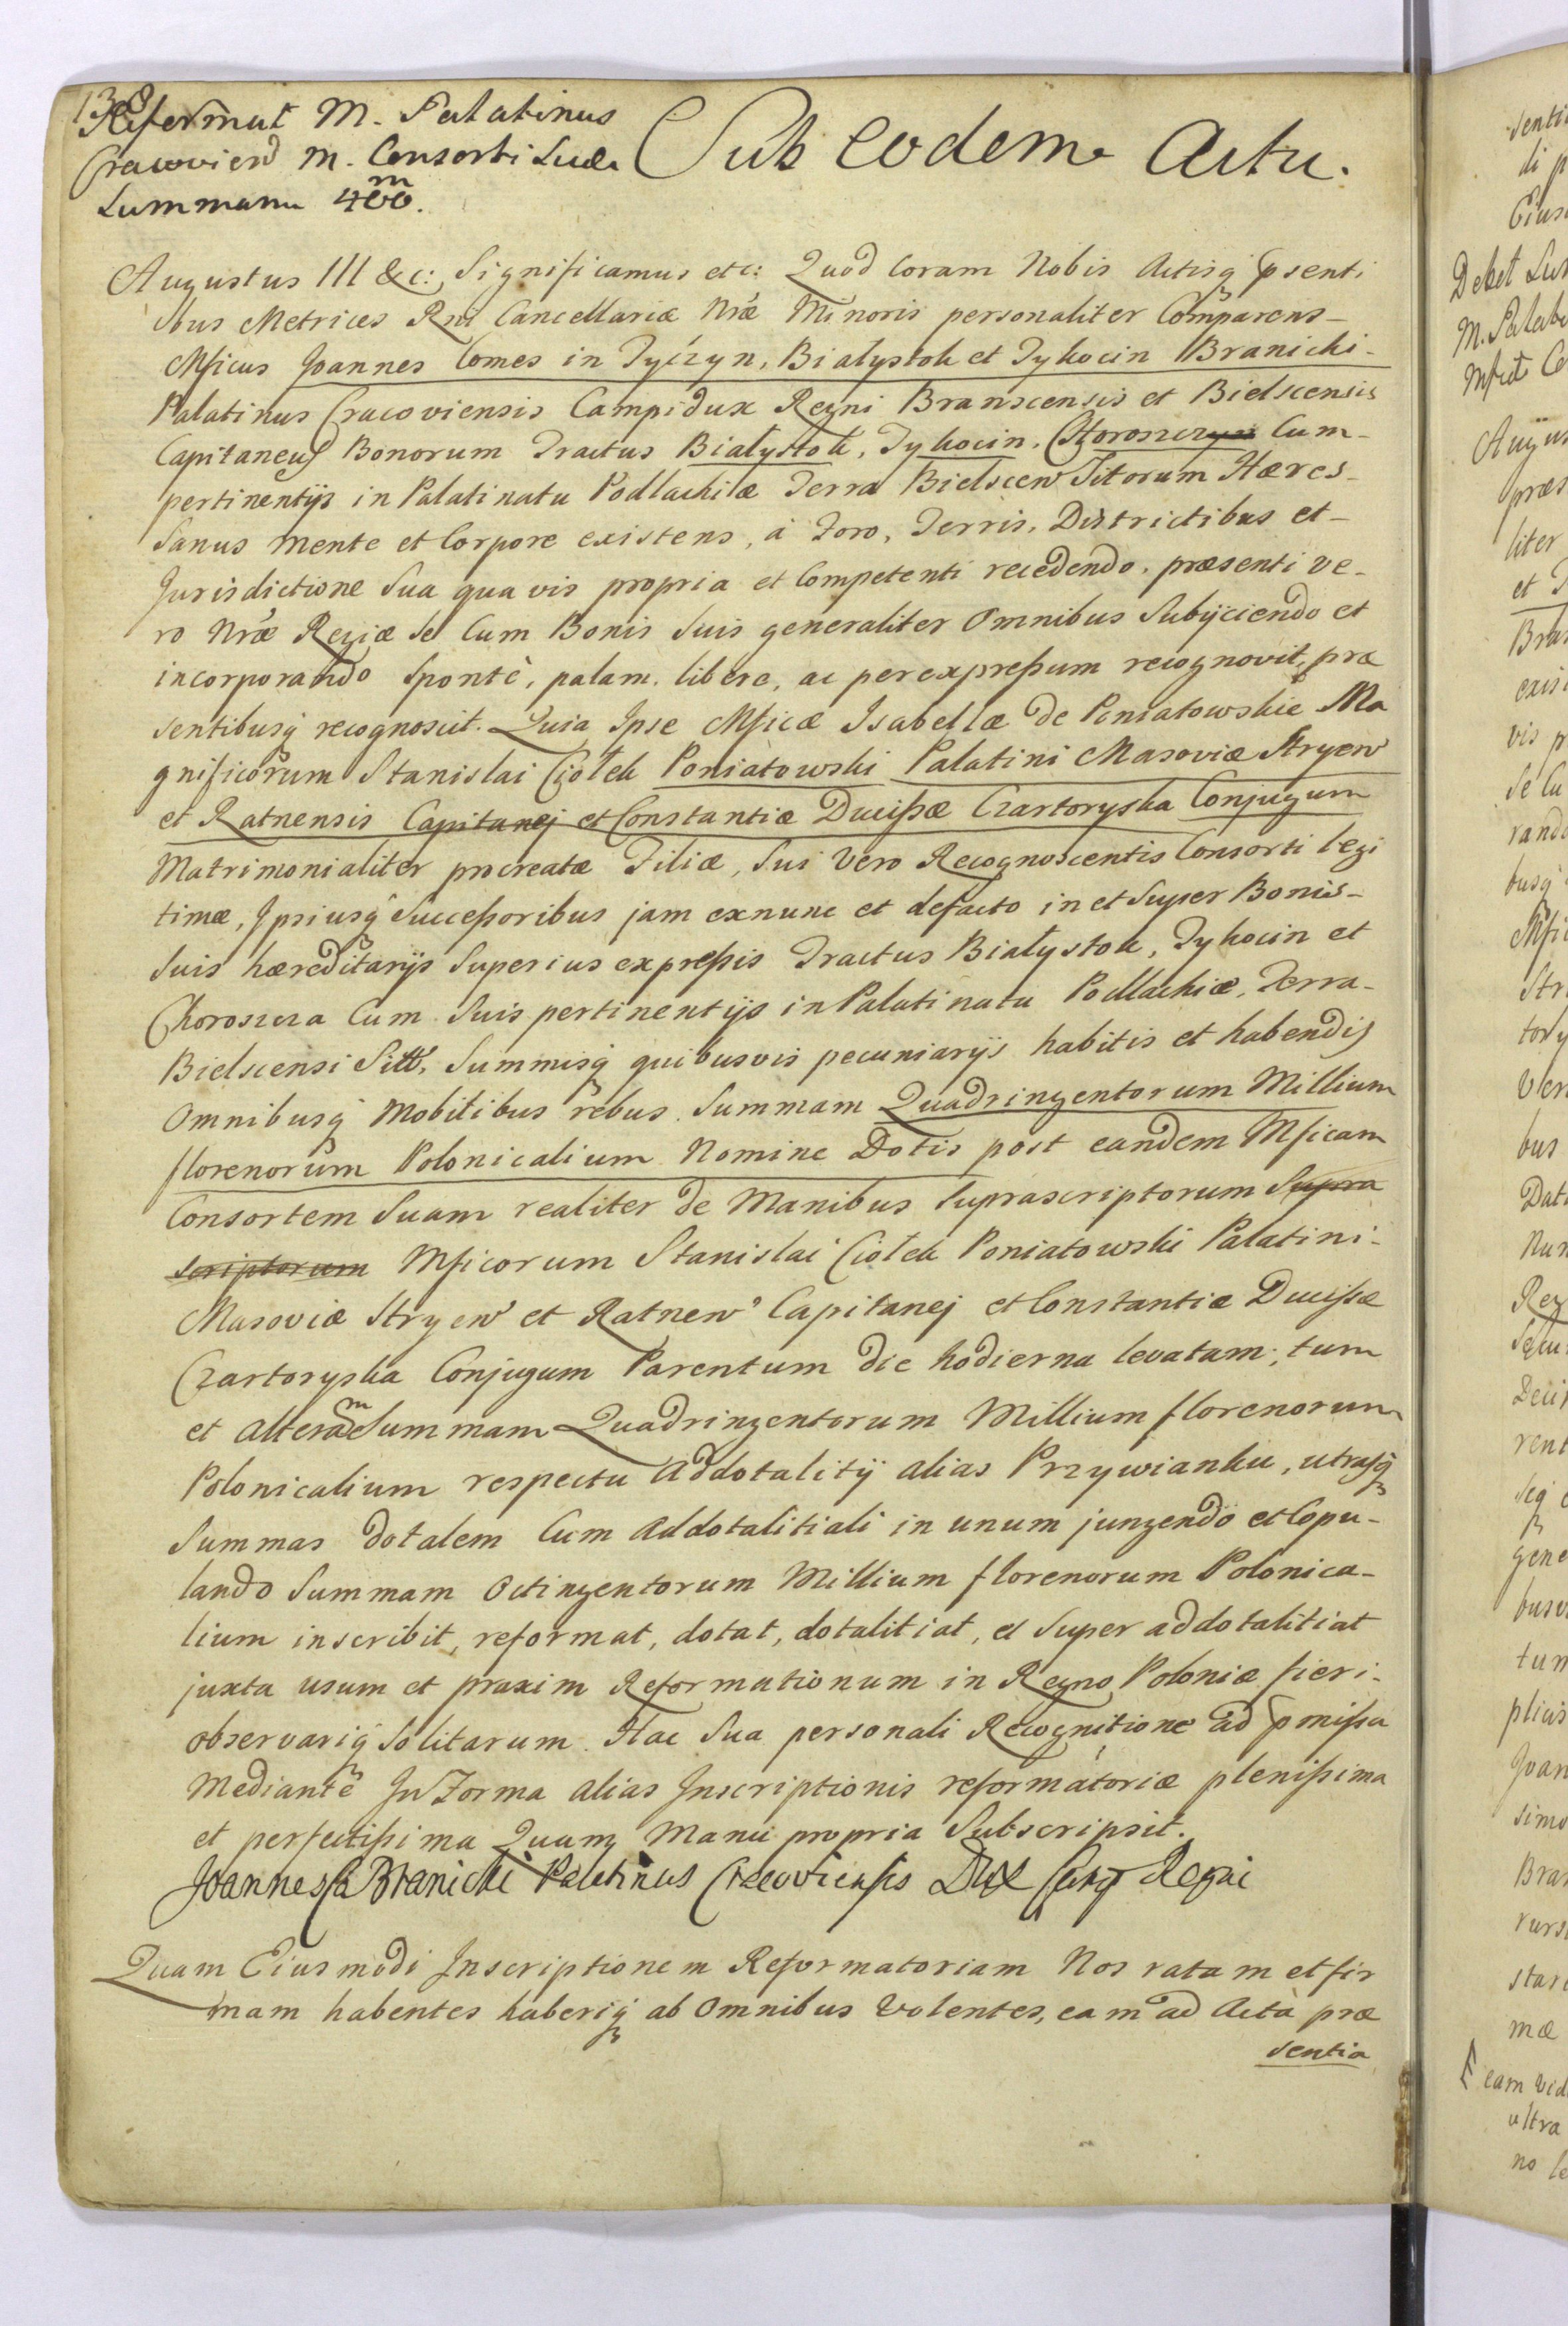 138
Reformat M. Palatinus
Cracovien M. Consorti Suae
Summam 400 m.
Sub Eodem Actu.
Augustus III &c: Significamus etc: Quod Coram Nobis Actisq psenti
bus Metrices Rni Cancellariæ Nræ Minoris personaliter Comparens-
Mficus Joannes Comes in Tyczyn, Białystok et Tykocin Branicki-
Palatinus Cracoviensis Campidux Regni Branscensis et Bielscensis
Capitaneus Bonorum Tractus Białystok, Tykocin, Choroszcza Cum-
pertinentijs in Palatinatu Podlachiæ Terra Bielscen Sitorum Hæres-
Sanus Mente et Corpore existens, à Foro, Terris, Districtibus et-
Jurisdictione Sua quavis propria et Competenti recedendo, præsenti ve-
ro Nræ Regiæ Se Cum Bonis Suis generaliter Omnibus Subÿciendo et
incorporando Sponte, palam, libere, ac per expreßum recognovit, præ
sentibusq recognoscit. Quia Ipse Mficæ Isabellæ de Poniatowskie Ma
gnificorum Stanislai Ciołek Poniatowski Palatini Masoviæ Stryen
et Ratnensis Capitanej et Constantiæ Ducißæ Czartoryska Conjugum
Matrimonialiter procreatæ Filiæ, Sui Vero Recognoscentis Consorti legi
timæ, Ipsiusq Succeßoribus jam exnunc et defacto in et Super Bonis-
Suis hæreditarijs Superius expreßis Tractus Białystok, Tykocin et
Choroszcza Cum Suis pertinentijs in Palatinatu Podlachiæ, Terra-
Bielscensi Sitt, Summisq quibusvis pecuniarijs habitis et habendis
Omnibusq Mobilibus rebus. Summam Quadringentorum Millium
florenorum Polonicalium Nomine Dotis post eandem Mficam
Consortem Suam realiter de Manibus Suprascriptorum Supra
scriptorum Mficorum Stanislai Ciołek Poniatowski Palatini-
Masoviæ Stryen et Ratnen Capitanej et Constantiæ Ducißæ
Czartoryska Conjugum Parentum die hodierna levatam; tum
et alteram Summam Quadringentorum Millium florenorum
Polonicalium respectu Addotalitÿ alias Przywianku, utrasq
Summas dotalem Cum Addotalitiali in unum jungendo et Copu-
lando Summam Octingentorum Millium florenorum Polonica-
lium inscribit, reformat, dotat, dotalitiat, et Super addotalitiat
juxta usum et praxim Reformationum in Regno Poloniæ fieri-
observariq Solitarum. Hac Sua personali Recognitione ad pmißa
Mediante In Forma alias Inscriptionis reformatoriæ plenißima
et perfectißima Quam Manu propria Subscripsit.
Joannes Branicki Palatinus Cracoviensis Dux Camp Regni
Quam Eiusmodi Inscriptionem Reformatoriam Nos ratam et fir
mam habentes haberiq ab Omnibus Volentes, eam ad Acta præ
sentia